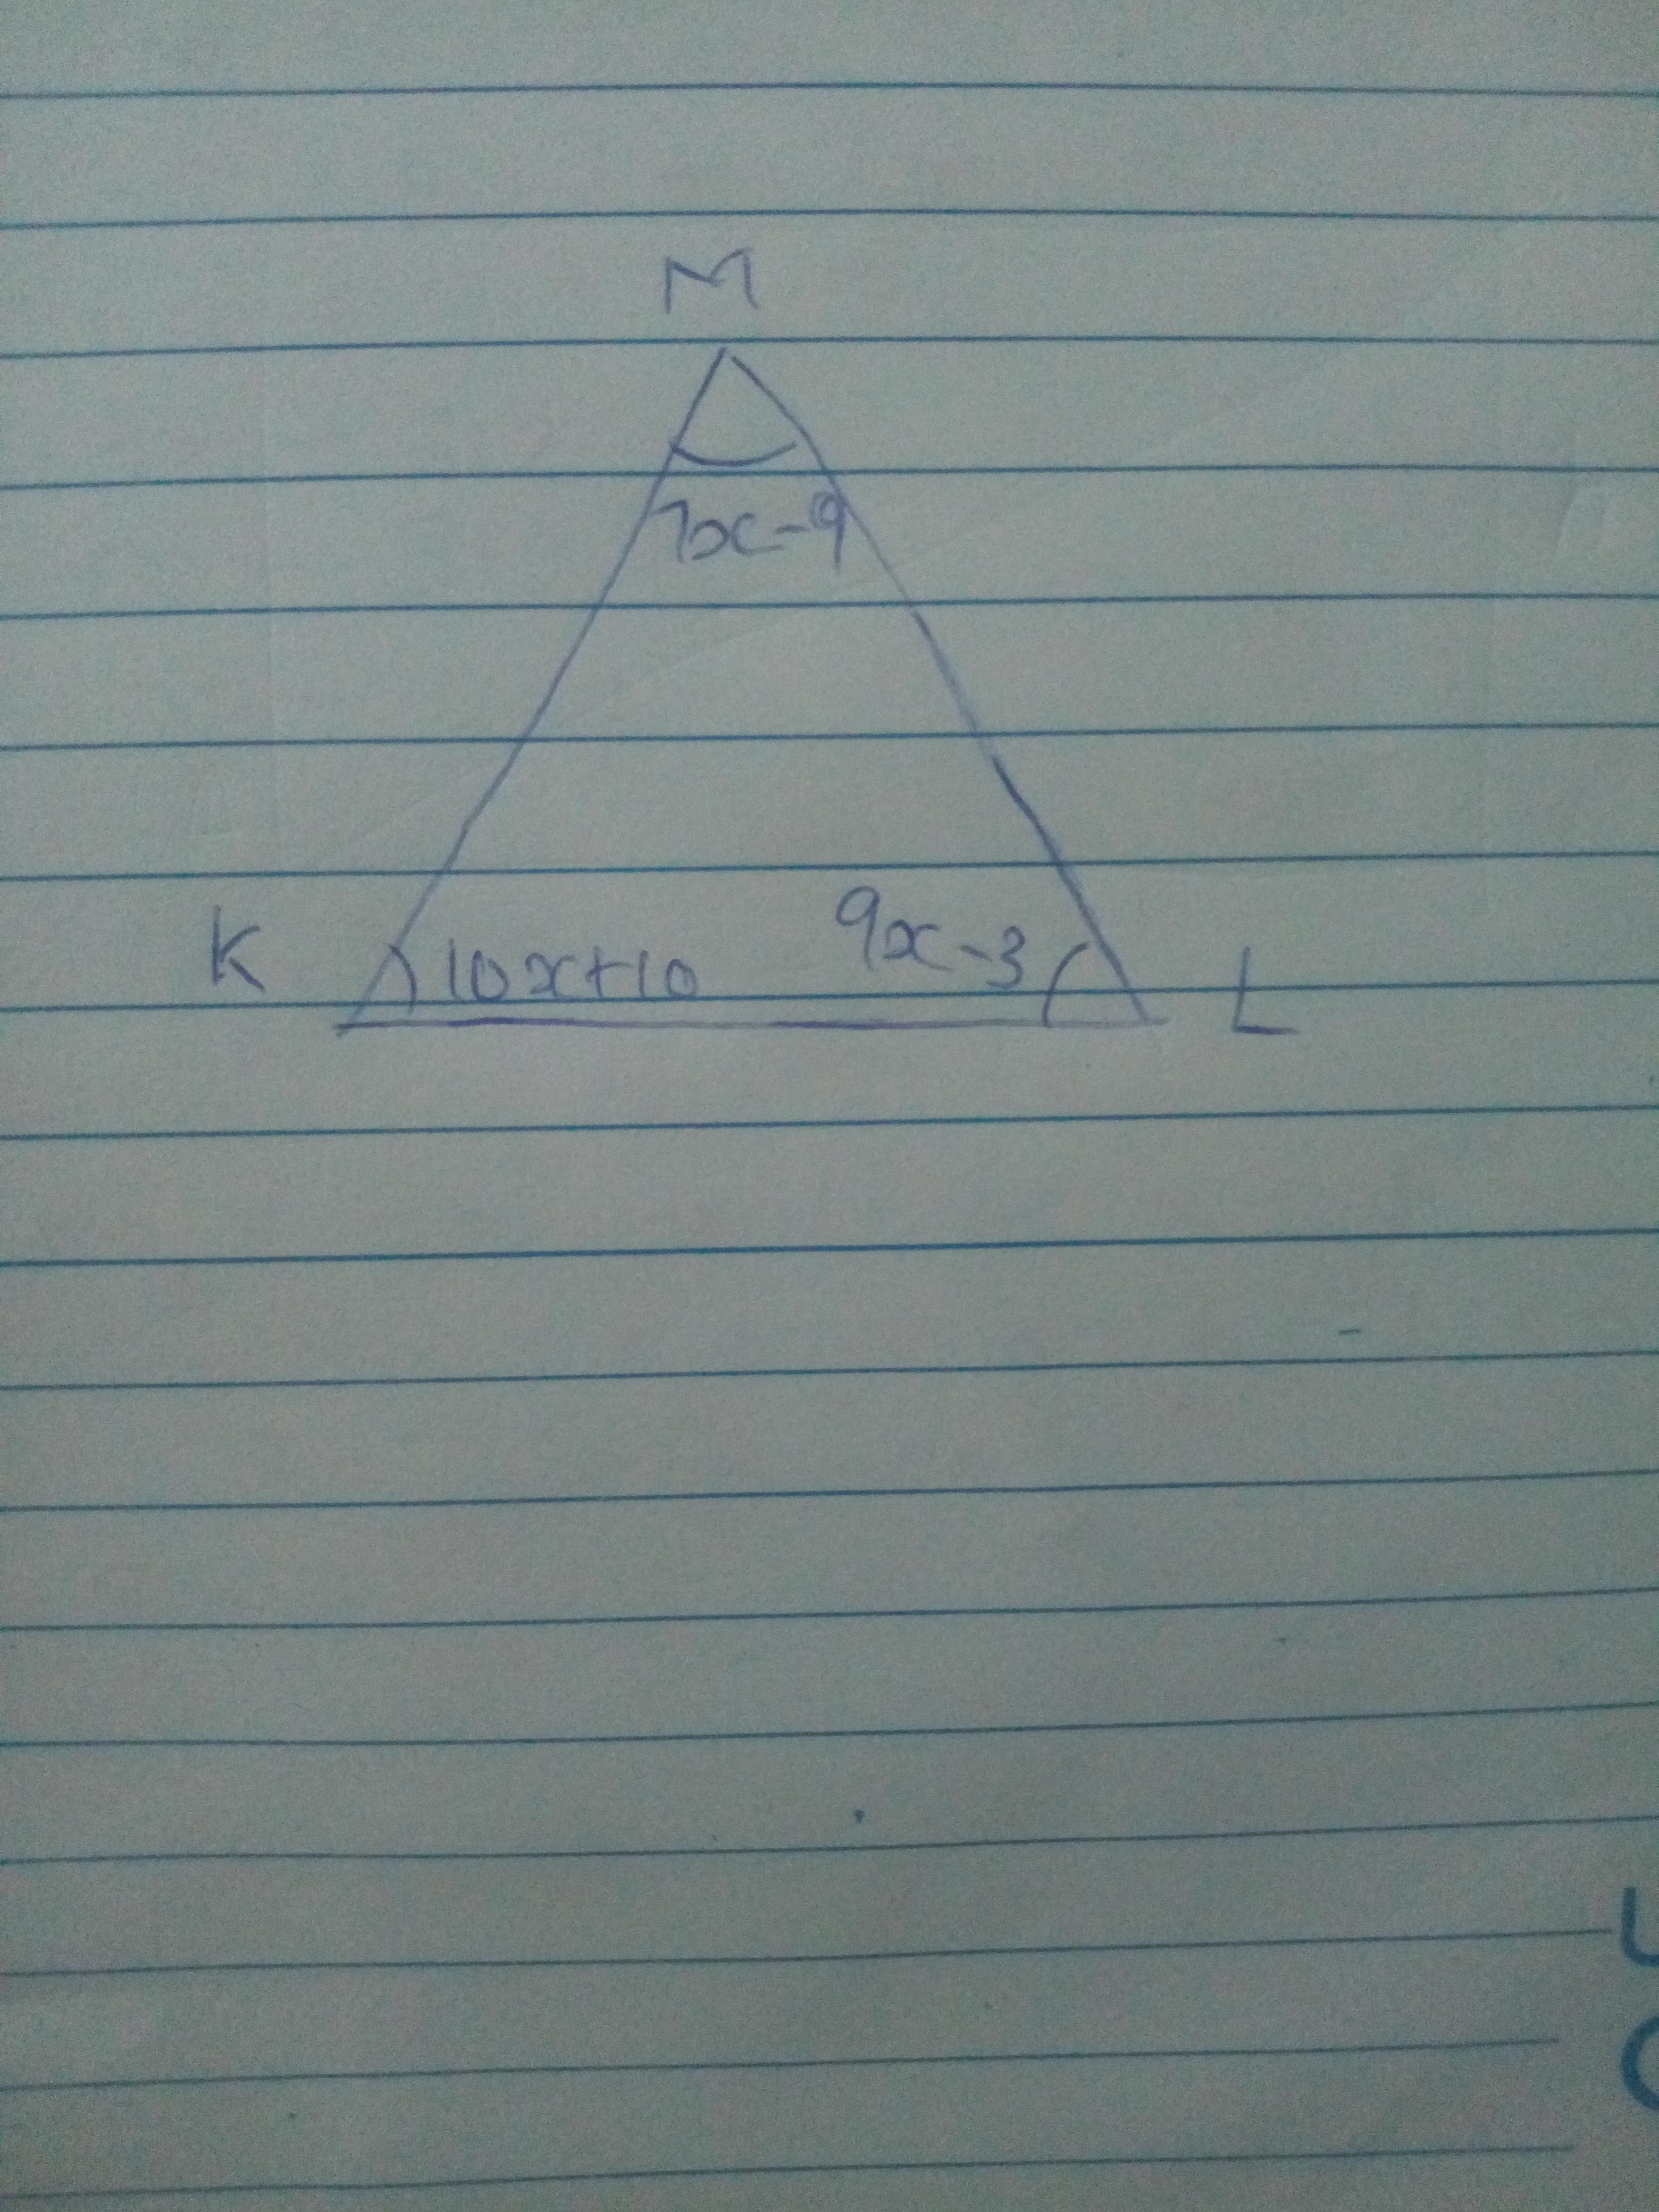 M
7x-9
K 10x+10 9x-3 L